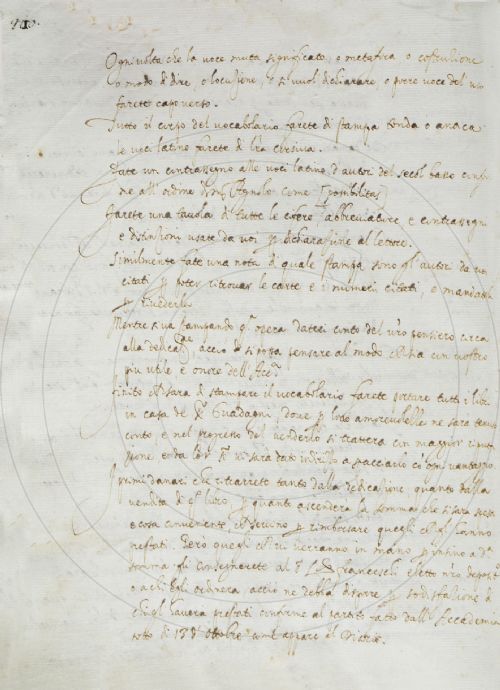 Ogni volta che la voce muta significato, o metafora o costruzione
o modo di dire, o locuzione, o si vuol dichiarare, o porre voce del uso
farete capoverso.
Tutto il corpo del vocabolario farete di stampa tonda o antica
le voci latine farete di l'ra corsiva.
Fate un contrassegno alle voci latine d'autori del secol basso
ne all'ordine come [possibilitas]
farete una tavola di tutte le abbreviature e contrassegni
e distinzioni usate da voi p dichiarazione al lettore.
Similmente fate una nota di quale stampa sono gl'autori da voi
citati p poter ritrovar le carte e i numeri citati, e mandate
p rivederlo
Mentre si va stampando q.a opera dateci conto del v'ro pensiero circa
alla acciò si possa pensare al modo che sia con nostro
più utile e onore dell'Acc.a
finito che sarà di stampare il vocabolario farete portare tutti i libri
in casa de Guadagni, dove p loro amorevolezza ne sarà tenuto
conto, e nel progresso del venderlo si tratterà con maggior
e da vi sarà dato indirizzo a spacciarlo co' ogni vantaggio
I primi danari che ritrarrete tanto dalla dedicazione, quanto dalla
vendita di libro p quanto ascenderà la somma che si sarà spesa
e cosa conveniente, che servino p rimborsare quegli che gl'hanno
prestati. Però quegli che vi verranno in mano p insino a d.a
somma gli consegnerete al Franceschi eletto n'ro
o a chi Egli ordinerà, acciò ne debba disporre p sodisfazione di
chi gl'haverà prestati conforme al partito fatto dall'Accademia
sotto di ottobre com'appare al Diario.